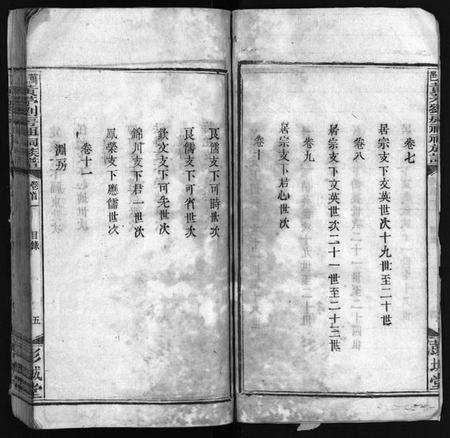 卷七
居宗支下文英世次十九世至二十世
卷八
居宗支下文英世次二十一世至二十三世
卷九
居宗支下君心世次
卷十
艮儒支下可時世次
艮儒支下可省世次
欽文支下可先世次
錦川支下君一世次
鳳榮支下應儒世次
卷十一
淵房
卷首
目錄
五
彭城堂
彭城堂